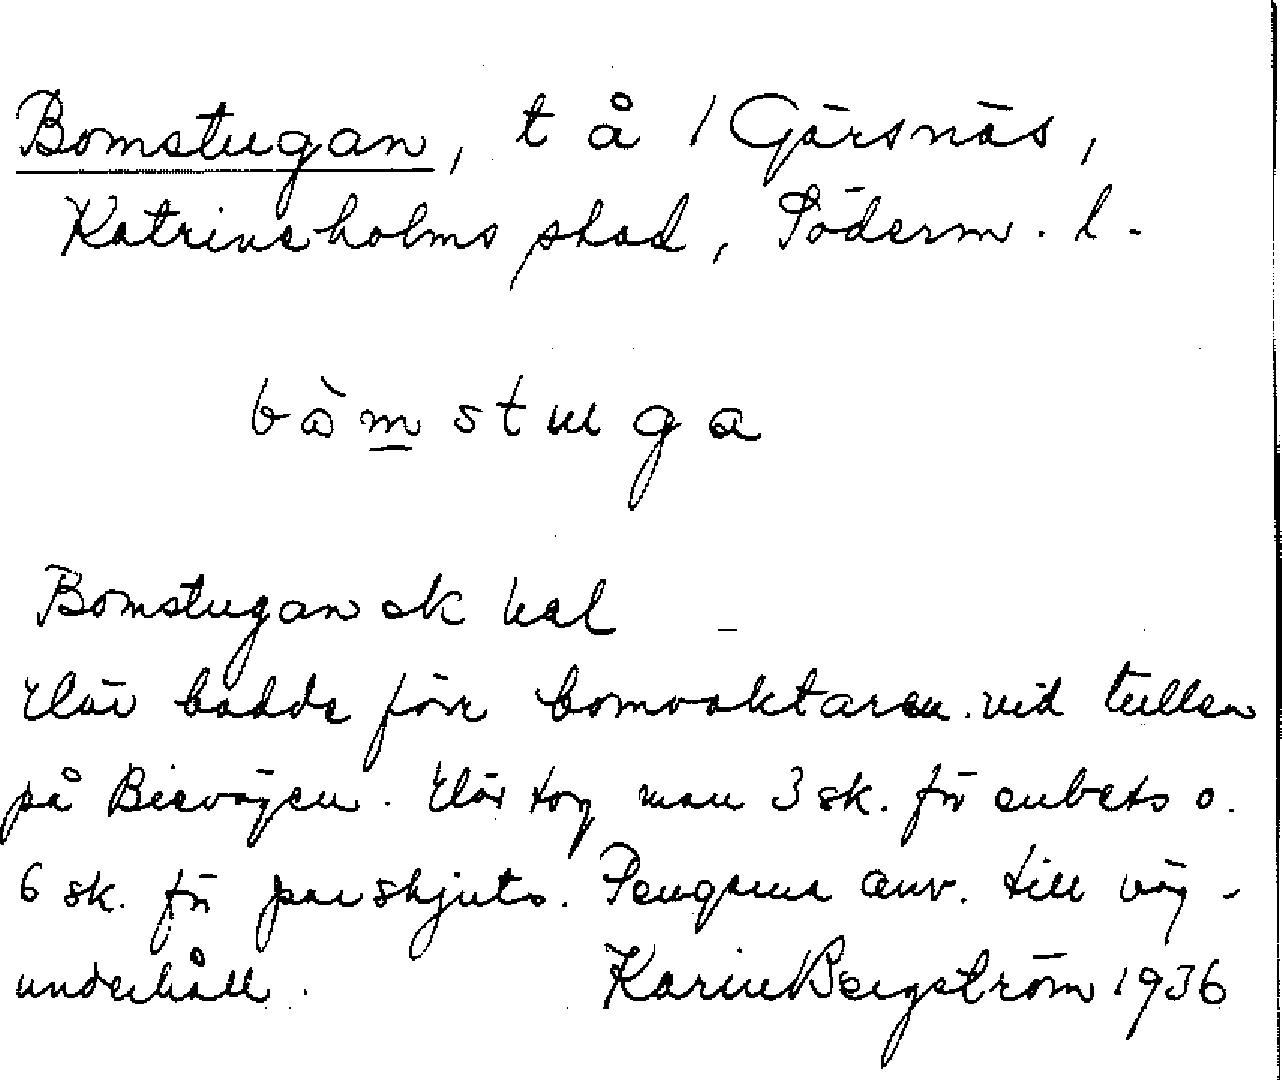 Bomstugan, t å 1 Gärsnäs,
Katrineholms stad, Söderm. l.
båmstuga
Bomstugan ek kal
Här bodde förr bomvaktaren vid tullen
på Bievägen. Här tog man 3 sk. för enbets o.
6 sk. för parskjuts. Pengarna anv. till väg-
underhåll. Karin Bergström 1936